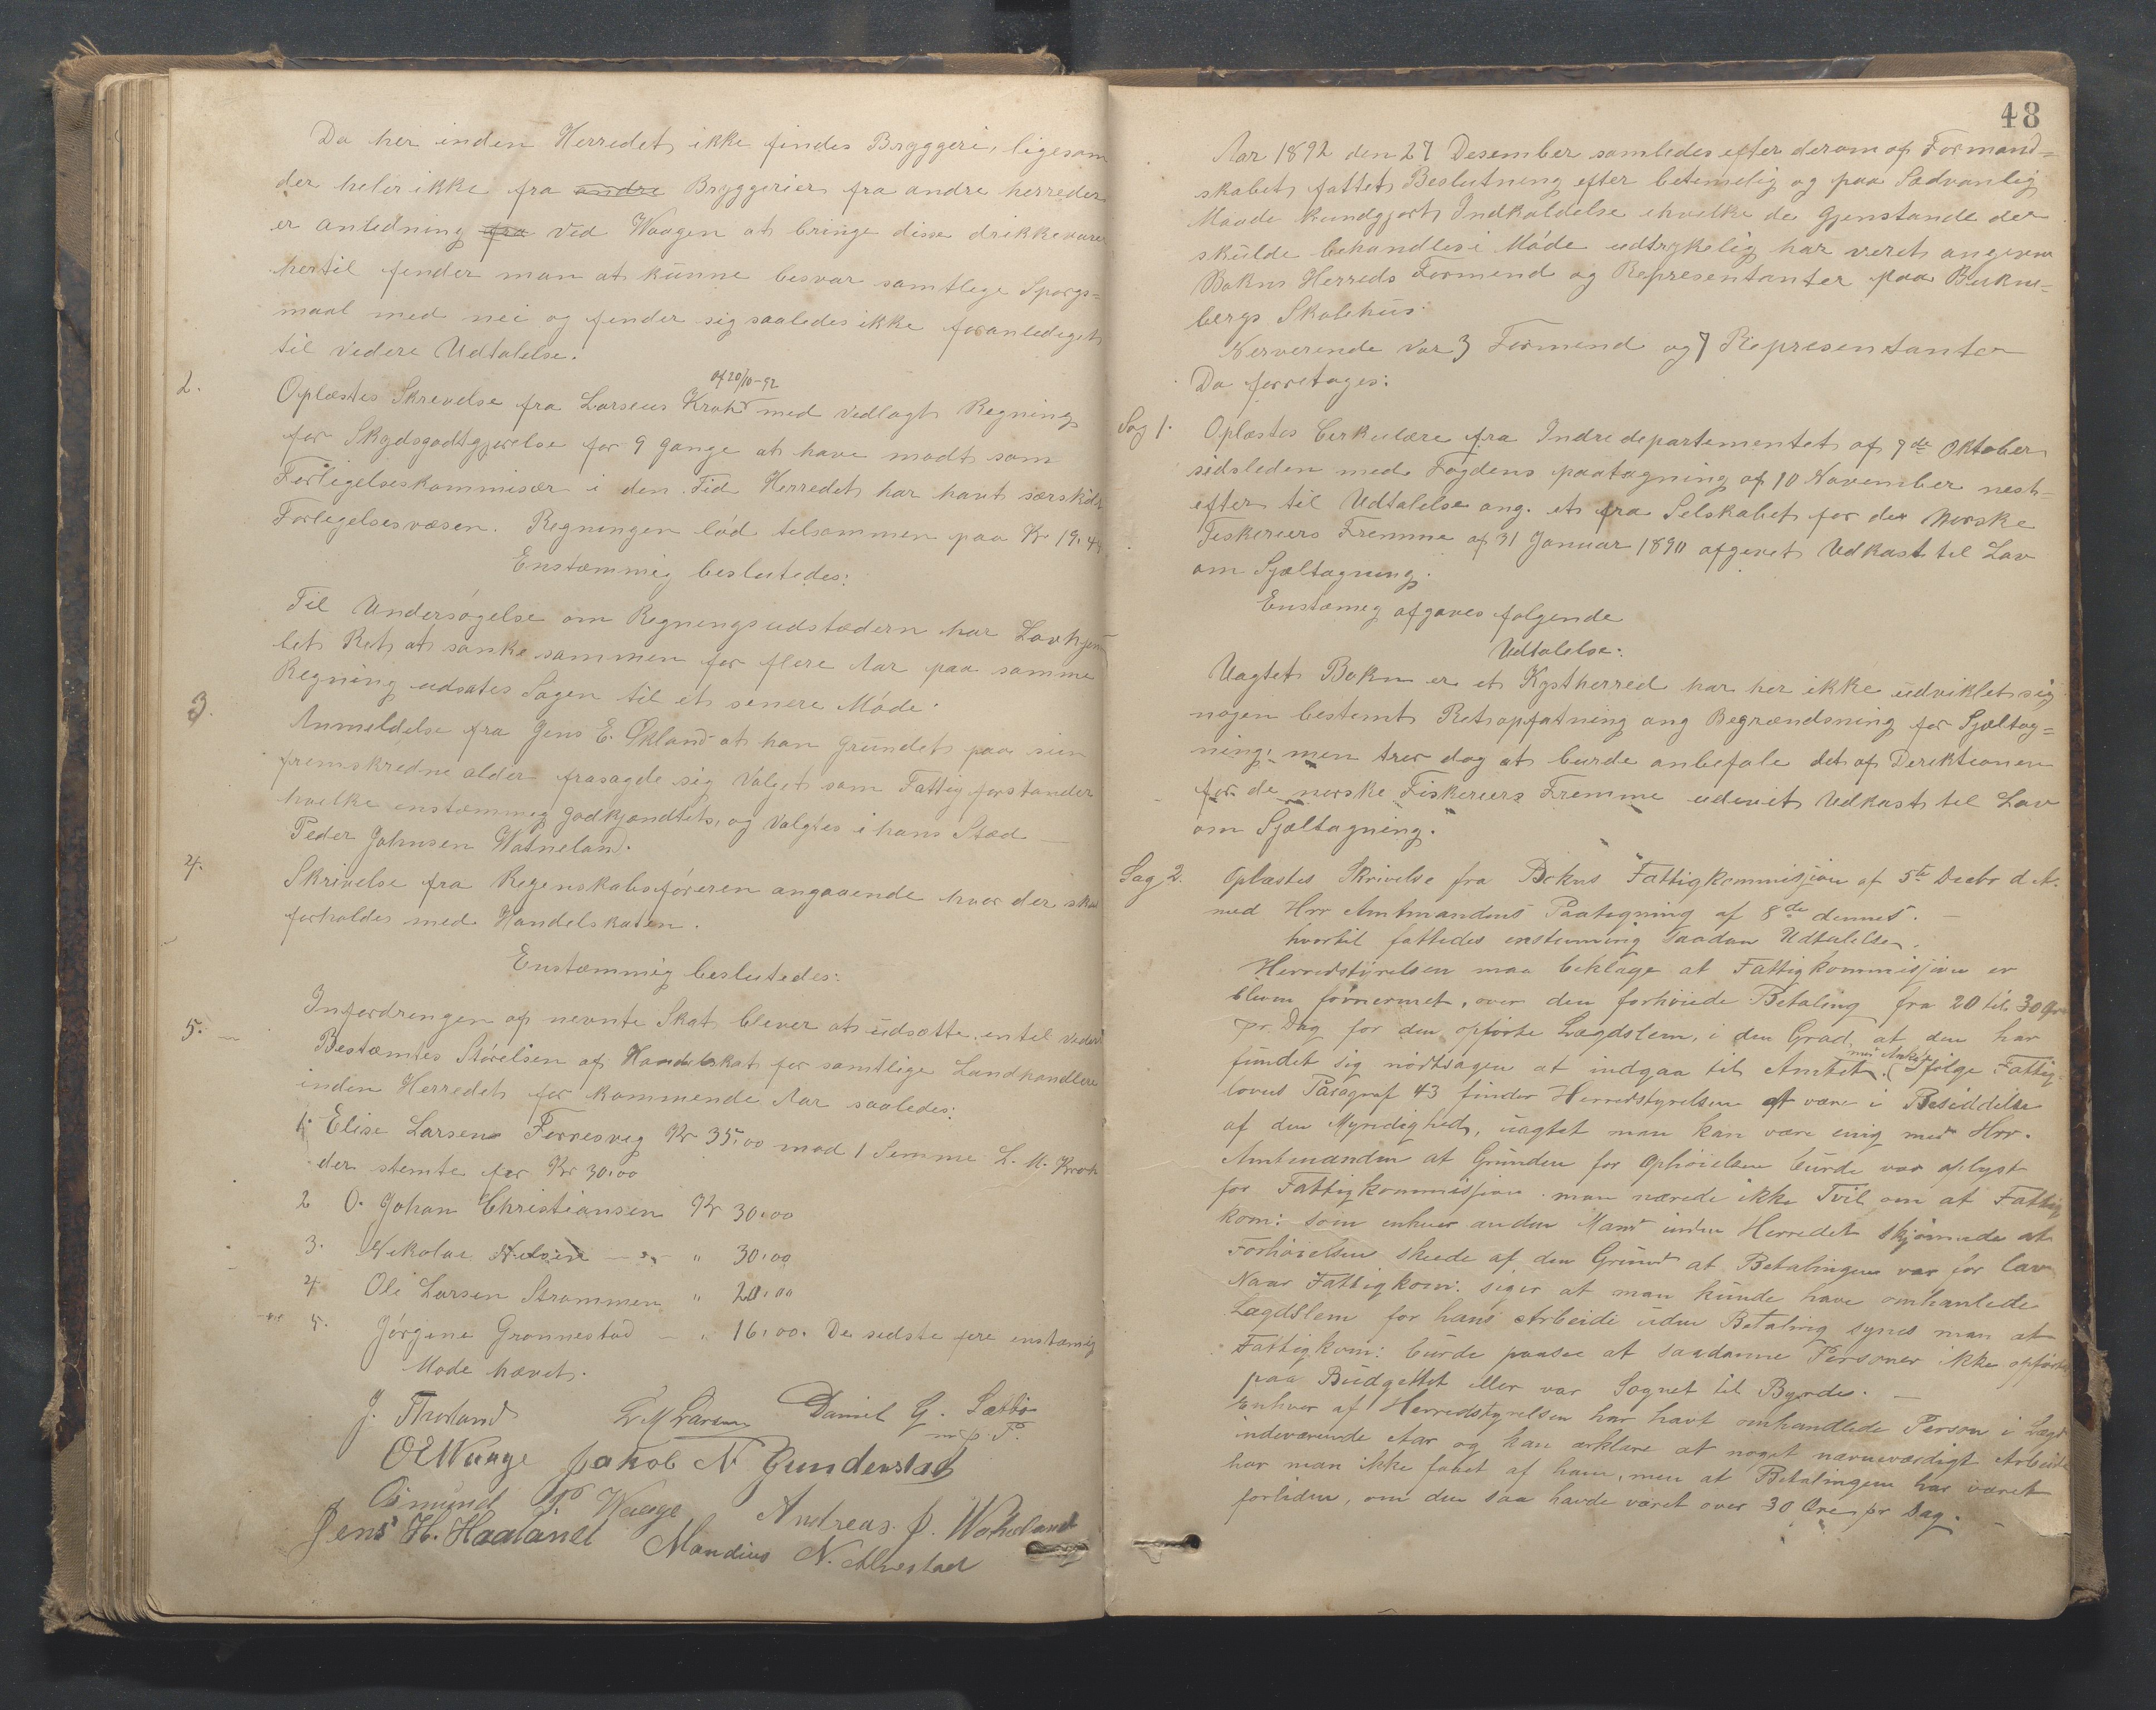 Da her inden Herredet ikke findes Bryggeri, ligesom
der heler ikke fra andre Bryggerier fra andre herreder
er anledning fra ved Waagen at bringe disse drikkevarer
hertil finder man at kunne besvar samtlege Spørgs=
maal med nei og fender sig saaledes ikke foranlediget
til videre Udtalelse.
2.
Oplæstes Skrevelse fra Larseus Kroh af 20/10-92 med vedlagt Regning
for Skydsgodtgjørelse for 9 gange at have mødt som
Forligelseskommisær i den Tid Herredet har havt særskildt
Forlegelsesvæsen. Regningen lød telsammen paa Kr 19.44
Enstemmig beslutedes:
Til Undersøgelse om Regningsudstæderen har Lovhjem=
let Ret at sanke sammen for flere Aar paa samme
Regning udsates Sagen til et senere Møde.
3.
Anmeldelse fra Jens E. Økland at han Grundet paa sin
fremskredne alder frasagde sig Valget som Fattigforstander
hvelke enstemmig godkjendtes, og Valgtes i hans Stæd
Peder Johnsen Watneland.
4.
Skrivelse fra Regenskabsføreren angaaende hvor der skal
forholdes med Handelskaten.
Enstemmig beslutedes:
Infordringen af nevnte Skat blever at udsætte entel vedere
5.
Bestæmtes Størelsen af Handelskat for samtlige Landhandlere
inden Herredet for kommende Aar saaledes:
1. Elise Larsen Førresvig Kr 35.00 mod 1 Stemme L. M. Kroh
der stemte for Kr 30.00
2 O. Johan Christiansen Kr 30.00
3. Nekolai Nelsen " 30.00
4 Ole Larsen Strømmen " 20.00
5. Jørgine Grønnestad " 16.00. De sidste fire enstæmig
Møde hævet.
J. Thorland L M Larsen Daniel G. Sætbø
m. p. P.
O E Waage Jakob N Gunderstad
Osmund P. Waage Andreas J. Wokoland
Jens H. Haaland Mandius N. Alvestad
48
Aar 1892 den 27 Desember samledes efter derom af Formand=
skabet fattet Beslutning efter betimelig og paa Sædvanlig
Maade kundgjort Indkaldelse ehvelke de Gjenstande der
skulde behandles i Møde udtrykelig har veret angiven
Bokns Herreds Formend og Representanter paa Bukne=
bergs Skolehus.
Nerverende var 3 Formend og 7 Representanter
Da forretoges:
Sag 1.
Oplæstes Cirkulære fra Indredepartementet af 7de Oktober
sidsleden med Fogdens paategning af 10 November nest=
efter til Udtalelse ang. et fra Selskabet for de Norske
Feskeriers Fremme af 31 Januar 1890 afgevet Udkast til Lov
om Sjæltagning.
Enstæmeg afgaves følgende
Udtalelse:
Uagtet Bokn er et Kystherred har her ikke udviklet sig
nogen bestemt Retsopfatning ang Begrændsning for Sjæltag=
ning. men trer dog at burde anbefale det af Derektionen
for de norske Fiskeriers Fremme udevet Udkast til Lov
om Sjæltagning.
Sag 2.
Oplæstes Skrivelse fra Bokns Fattigkommisjon af 5te Decbr d. A.
med Hrr Amtmandens Paategning af 8de dennes.
hvortil fattedes enstemmig saadan Udtalelse.
Herredstyrelsen maa beklage at Fattigkommisjonen er
bleven fornermet over den forhøiede Betaling fra 20 til 30 Øre
pr. Dag for den opførte Lægdslem, i den Grad, at den har
fundet sig nødtsagen at indgaa til Amtet med Anke. Ifølge Fattig=
lovens Paragraf 43 finder Herredstyrelsen at være i Besiddelse
af den Myndighed, uagtet man kan være enig med Hrr.
Amtmanden at Grunden for Ophøielsen burde vær oplyst
for Fattigkommissjonen. man nærede ikke Tvil om at Fattig
kom: som enhver anden Mand inden Herredet skjønnede at
Forhøielsen skeede af den Grund at Betalingen var for lav
Naar Fattigkom: siger at man kunde have omhanlede
Lægdslem for hans Arbeide uden Betaling synes man at
Fattigkom: burde paasee at saadanne Personer ikke opførtes
paa Budgettet eller var Sognet til Byrde.
Enhver af Herredstyrelsen har havt omhandlede Person i Lægd
indeværende Aar og kan erklære at noget nævneværdigt Arbeide
har man ikke faaet af ham, men at Betalingen har været
forliden, om den saa havde været over 30 Øre pr Dag.